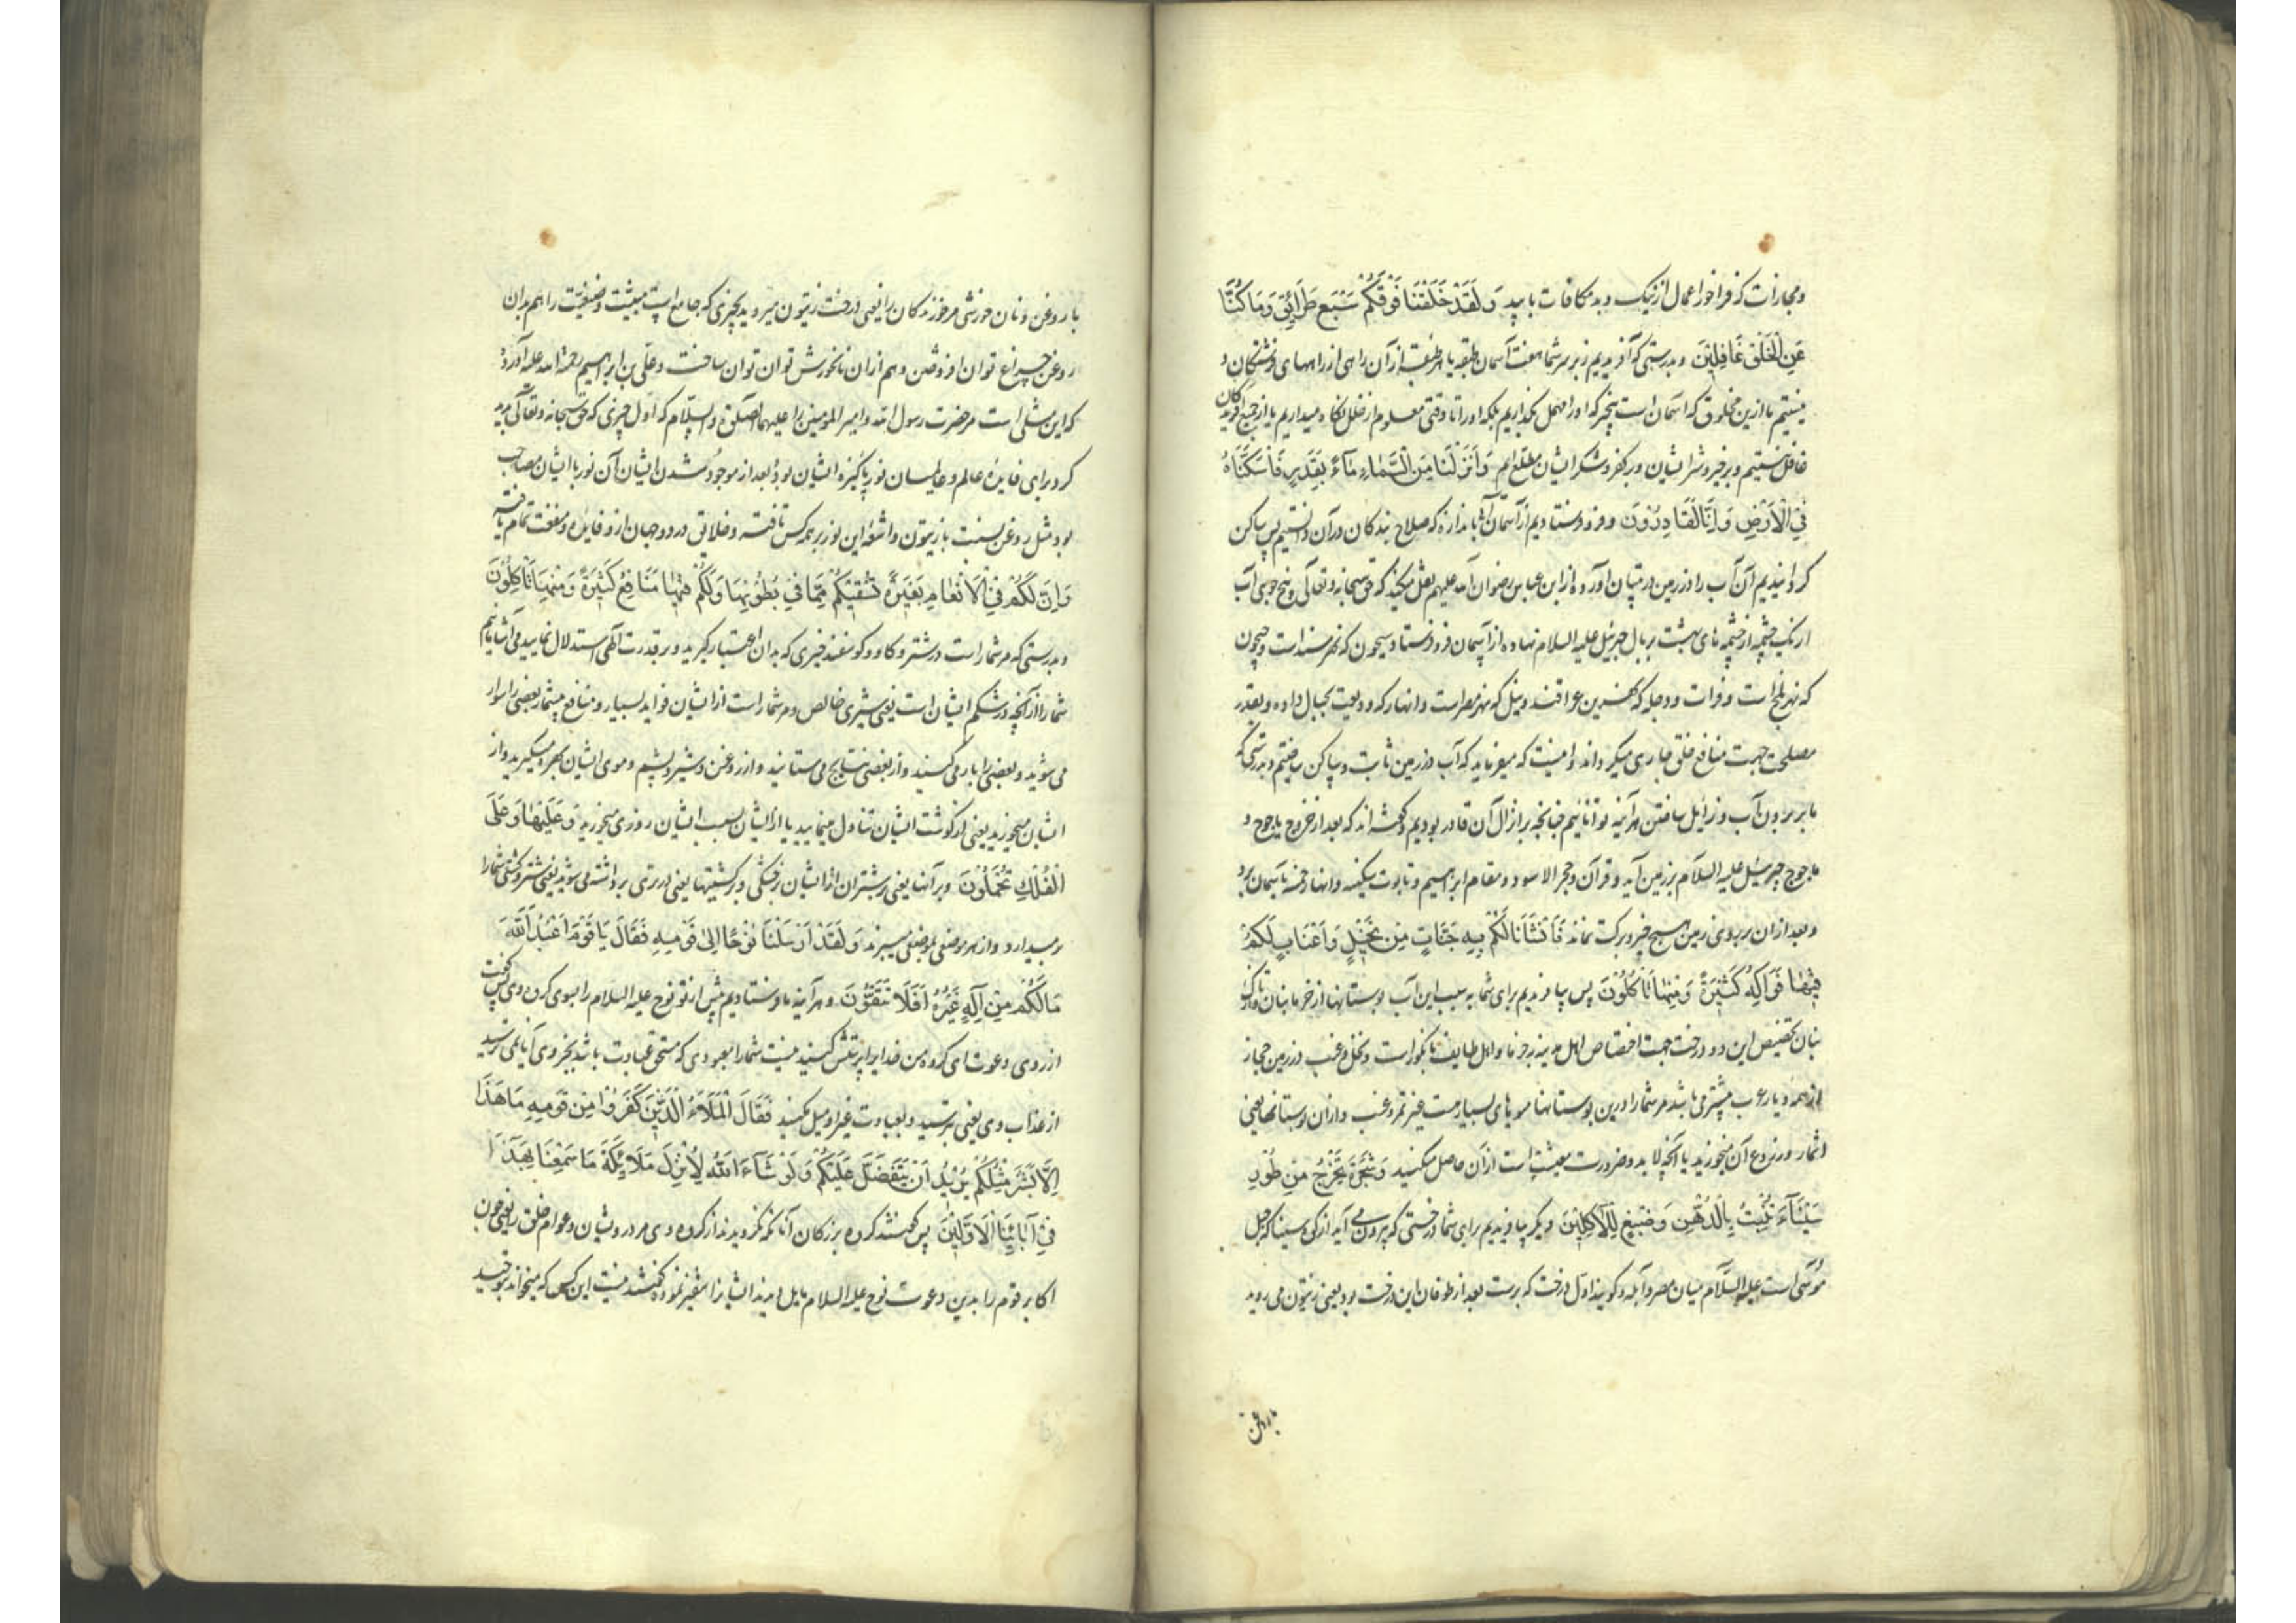 ومجازات که فراخور اعمال از نیک و بد مکافات یابید وَلَقَدْ خَلَقْنَا فَوْقَكُمْ سَبْعَ طَرَائِقَ وَمَا كُنَّا
عَنِ الْخَلْقِ غَافِلِينَ و بدرستی که آفریدیم زبر سر شما هفت آسمان طبقه یا هر طبقه از آن راهی از راههای فرشتگان و
نیستیم ما ازین مخلوق که آسمان است بیخبر که او را مهمل بگذاریم بلکه او را تا وقتی معلوم از خلل نگاه میداریم یا از جمیع آفریدگان
غافل نیستیم و بر خیر و شر ایشان و بر کفر و شکر ایشان مطلع ایم وَأَنْزَلْنَا مِنَ السَّمَاءِ مَاءً بِقَدَرٍ فَأَسْكَنَّاهُ
فِي الْأَرْضِ وَإِنَّا لَقَادِرُونَ و فرو فرستادیم از آسمان آب باندازه که صلاح بندگان در آن دانستیم پس ساکن
گردانیدیم آن آب را در زمین در تبیان آورده از ابن عباس رضوان الله علیهم نقل میکند که حق سبحانه و تعالی پنج جوی آب
از یک چشمه از چشمه های بهشت بر بال جبرئیل علیه السلام نهاده از آسمان فرو فرستاد سیحون که نهر هند است و جیحون
که نهر بلخ است و فرات و دجله که نهرین عراقند و نیل که نهر مصر است و انهار که ودیعت بجبال داده و بقدر
مصلحت جهت منافع خلق جاری میگرداند و اینست که میفرماید که آب در زمین ثابت و ساکن ساختیم و بدرستی که
ما بر بردن آب و زایل ساختن هرآینه تواناییم چنانچه بر انزال آن قادر بودیم و گفته اند که بعد از خروج یاجوج و
ماجوج جبرئیل علیه السلام بر زمین آید و قرآن و حجر الاسود و مقام ابراهیم و تابوت سکینه و انهار خمسه بآسمان برد
و بعد از آن بر روی زمین هیچ خیر و برکت نماند فَأَنْشَأْنَا لَكُمْ بِهِ جَنَّاتٍ مِنْ نَخِيلٍ وَأَعْنَابٍ لَكُمْ
فِيهَا فَوَاكِهُ كَثِيرَةٌ وَمِنْهَا تَأْكُلُونَ پس بیافریدیم برای شما به سبب این آب بوستانها از خرمابنان و تاک
بنان تخصیص این دو درخت جهت اختصاص اهل مدینه بخرما و اهل طایف بانگور است و نخل و عنب در زمین حجاز
از همه دیار عرب بیشتر می باشد مر شما را درین بوستانها میوهای بسیارست غیر تمر و عنب و از آن بوستانها یعنی
اثمار و زروع آن میخورید یا آنچه لابد و ضرورت معیشت است از آن حاصل میکنید وَشَجَرَةً تَخْرُجُ مِنْ طُورِ
سَيْنَاءَ تَنْبُتُ بِالدُّهْنِ وَصِبْغٍ لِلْآكِلِينَ و دیگر بیافریدیم برای شما درختی که بیرون می آید از کوه سینا که جبل
موسی است علیه السلام میان مصر و ایله و گویند اول درخت که برست بعد از طوفان این درخت بود یعنی زیتون می روید
با روغن
با روغن و نان خورشی مر خورندگان را یعنی درخت زیتون میروید بچیزی که جامع است میبینت را هم بدان
روغن چراغ توان افروختن و هم از آن نانخورش توان ساخت و علی بن ابراهیم رحمة الله علیه آورده
که این مثلی است مر حضرت رسول الله و امیر المؤمنین را علیهما الصلوة والسلام که اول چیزی که حق سبحانه و تعالی پدید
کرد برای فایده عالم و عالمیان نور پاکیزه ایشان بود و بعد از موجود شدن ایشان آن نور با ایشان مصاحب
بود مثل روغن بنسبت با زیتون و اشعه این نور بر همه کس تافته و خلایق در دو جهان از و فایده و منفعت تمام یافته
وَإِنَّ لَكُمْ فِي الْأَنْعَامِ لَعِبْرَةً نُسْقِيكُمْ مِمَّا فِي بُطُونِهَا وَلَكُمْ فِيهَا مَنَافِعُ كَثِيرَةٌ وَمِنْهَا تَأْكُلُونَ
و بدرستی که مر شما راست در شتر و گاو و گوسفند چیزی که بدان اعتبار گیرید و بر قدرت الهی استدلال نمایید می آشامانیم
شما را از آنچه در شکم ایشان است یعنی شیری خالص و مر شما راست از ایشان فواید بسیار و منافع بیشمار بعضی را سوار
می شوید و بعضی را بار می کنید و از بعضی نتایج می ستانید و از روغن و شیر و پشم و موی ایشان بهره میگیرید و از
ایشان میخورید یعنی از گوشت ایشان تناول مینمایید یا از ایشان بسبب ایشان روزی میخورید وَعَلَيْهَا وَعَلَى
الْفُلْكِ تُحْمَلُونَ و بر آنها یعنی بر شتران از ایشان در خشکی و بر کشتیها یعنی در تری برداشته می شوید یعنی شتر و کشتی شما را
برمیدارد و از هر موضعی بموضعی میبرند وَلَقَدْ أَرْسَلْنَا نُوحًا إِلَى قَوْمِهِ فَقَالَ يَا قَوْمِ اعْبُدُوا اللَّهَ
مَا لَكُمْ مِنْ إِلَهٍ غَيْرُهُ أَفَلَا تَتَّقُونَ و هرآینه ما فرستادیم پیش از تو نوح علیه السلام را بسوی گروه وی پس گفت
از روی دعوت ای گروه من خدایرا پرستش کنید نیست شما را معبودی که مستحق عبادت باشد بجز وی آیا نمی ترسید
از عذاب وی یعنی بترسید و بعبادت غیر او میل مکنید فَقَالَ الْمَلَأُ الَّذِينَ كَفَرُوا مِنْ قَوْمِهِ مَا هَذَا
إِلَّا بَشَرٌ مِثْلُكُمْ يُرِيدُ أَنْ يَتَفَضَّلَ عَلَيْكُمْ وَلَوْ شَاءَ اللَّهُ لَأَنْزَلَ مَلَائِكَةً مَا سَمِعْنَا بِهَذَا
فِي آبَائِنَا الْأَوَّلِينَ پس گفتند گروه بزرگان آنانکه نگرویدند از گروه وی مر درویشان و عوام خلق را یعنی چون
اکابر قوم را بدین دعوت نوح علیه السلام مایل دیدند ایشانرا متنفر نموده گفتند نیست این کس که میخواند بتوحید